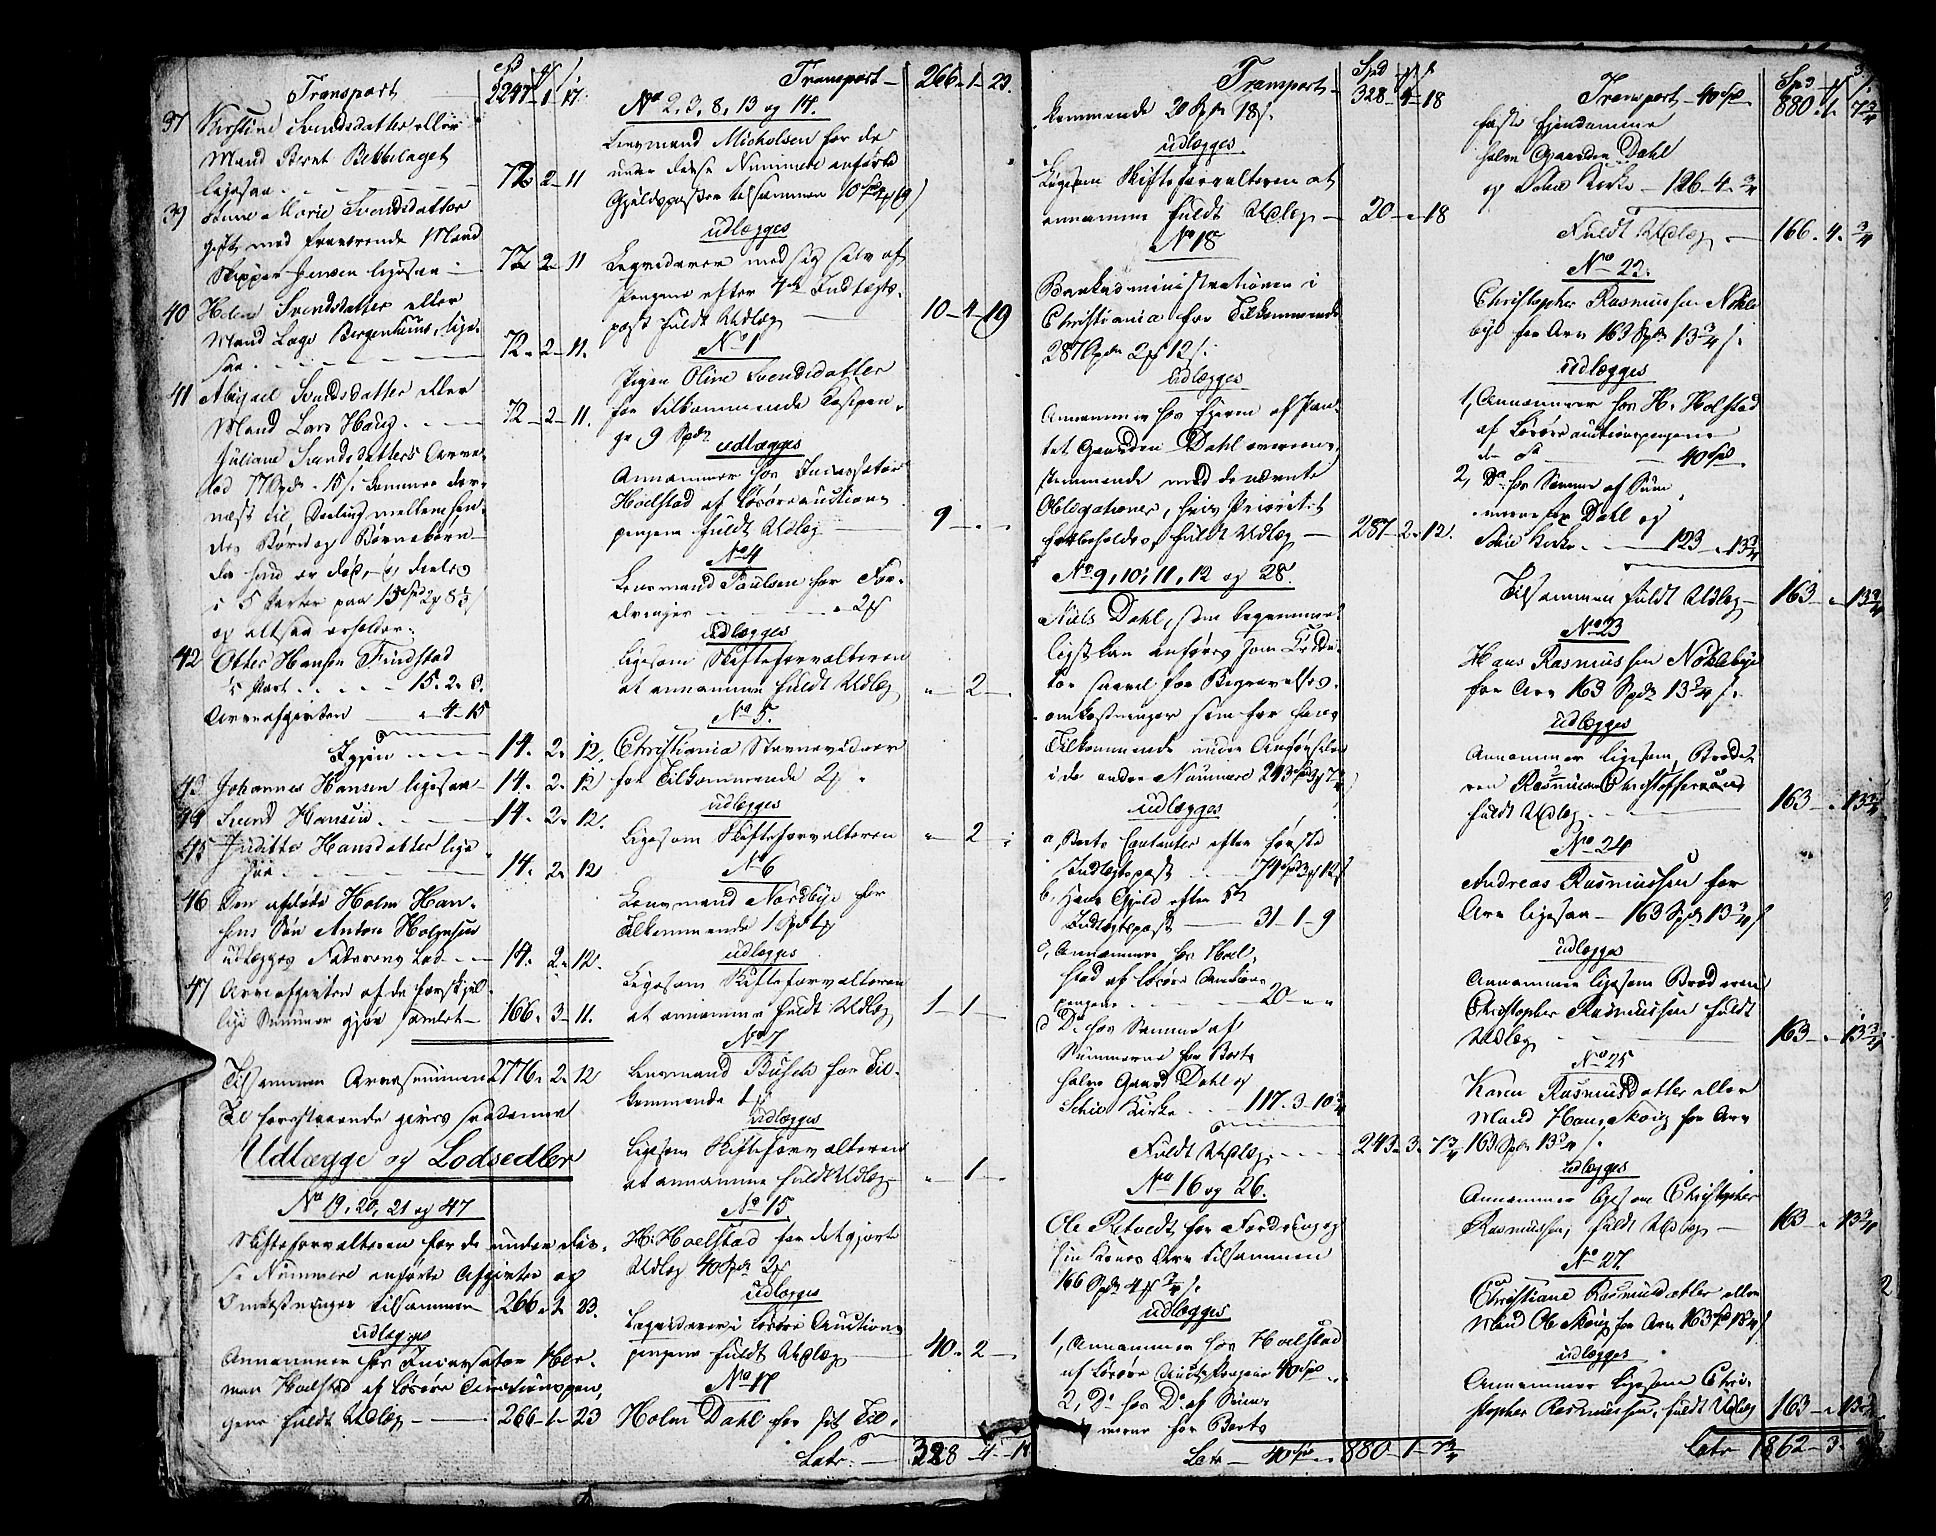 Transport — 2247 - 1 - 17
37 Kirstine Svendsdatter eller
Mand Bernt Bekkelaget
ligesaa — 72 - 2 - 11
39 Anne Marie Svendsdatter
gift med fraværende Mand
Skipper Jensen ligesaa — 72 - 2 - 11
40 Helene Svendsdatter eller
Mand Lage Bergenhuus, lige-
saa — 72 - 2 - 11.
41 Abigael Svendsdatter eller
Mand Lars Haug — 72 - 2 - 11.
Juliane Svendsdatters Arve-
lod 77 Spd - 15 s. kommer der-
næst til Deeling mellem hen-
des Børn og Børnebørn
da hun er død, og deeles
i 5 Parter
og altsaa erholder:
42 Otter Hansen Findstad
1/5 Part — 15. 2. 8.
Arveafgivten — " - 4 - 15
Igjen — 14. 2. 12.
43 Johannes Hansen ligesaa — 14. 2. 12
44 Svend Hansen — 14. 2. 12.
45 Juditte Hansdatter lige
saa — 14. 2. 12
46 Den afdøde Holm Han-
sens Søn Anton Holmsen
udlægges Faderens Lod — 14. 2. 12.
47 Arveafgivten af de forskjel-
lige Summer gjør samlet — 166. 3 - 11.
Tilsammen Arvesummen 2776. 2. 12
Til forestaaende gives saadanne
Udlægge og Lodsedler
No 19, 20, 21 og 47
Skifteforvalteren for de under dis-
se Nummere anførte Afgivter og
Omkostninger tilsammen 266 - 1 - 23.
udlægges
Annammer hos Incassator Her-
man Hoelstad af Løsøre Auctionspen-
gene fuldt Udlæg — 266 - 1 - 23
Transport — 266 - 1 - 23.
No 2, 3, 8, 13 og 14.
Lensmand Michelsen for de
under disse Nummere anførte
Gjeldsposter tilsammen
udlægges
Liqviderer med sig selv af
Pengene efter 4de Indtægts-
post fuldt Udlæg — 10 - 4 - 19
No 1
Pigen Oline Svendsdatter
for tilkommende
9 Spd
udlægges
Annammer hos Incassator
Hoelstad af Løsøreauctions
pengene fuldt Udlæg — 9 - " -
No 4
Lensmand Paulsen for For-
retninger — 2 ort
udlægges
Ligesom Skifteforvalteren
at annamme fuldt Udlæg " - 2 -
No 5.
Christiania Stervevidner
for Tilkommende 2 ort.
udlægges
Ligesom Skifteforvalteren " - 2 -
No 6
Lensmand Nordbye for
Tilkommende 1 Spd 1 ort
udlægges
Ligesom Skifteforvalteren
at annamme fuldt Udlæg 1 - 1 -
No 7
Lensmand Busch for Til-
kommende 1 ort
udlægges
Ligesom Skifteforvalteren
at annamme fuldt Udlæg - " - 1 -
No 15.
H. Hoelstad for det gjorte
Udlæg 40 Spd 2 ort
udlægges
Liqviderer i Løsøre Auctions
pengene fuldt Udlæg — 40 - 2 -
No 17
Holm Dahl for sit Til-
Latr. — 328 - 4 - 18
Transport — 328 - 4 - 18
kommende 20 Spd 18 s.
udlægges
Ligesom Skifteforvalteren at
annamme fuldt Udlæg — 20 - " - 18
No 18
Bankadministrationen i
Christiania for Tilkommende
287 Spd 2 ort 12 s.
udlægges
Annammer hos Eieren af Pan-
tet Gaarden Dahl overeens-
stemmende med de nævnte
Obligationer, hvis Prioritet
forbeholdes, fuldt Udlæg — 287 - 2 - 12.
No 9, 10, 11, 12 og 28.
Niels Dahl, som
anføres som Credi-
tor saavel for Begravelses-
omkostninger som for hans
Tilkommende under Anførslen
i de andre Nummere 243 Spd 3 ort 7 3/4
udlægges
a, efter første
Indtægtspost — 74 Spd 3 ort 12 s
b, Hans Gjeld efter 5te
Indtægtspost — 31 - 1 - 9
c, Annammer hos Hoel-
stad af Løsøre Auctions
pengene — 20 - " - "
d Do hos Samme af
Summerne for Borts
halve Gaard Dahl og
Schie Kirke — 117 - 3 - 10 3/4
Fuldt Udlæg — 243 - 3 - 7 3/4
No 16 og 26.
Ole Retvedt for Fordring og
sin Kones Arv tilsammen
166 Spd 4 ort 3/4 s.
udlægges
1, Annammer hos Hoelstad
af Løsøre Auct. Pengene 40 Spd
2, Do hos Do af Sum-
merne for Borts
Latr — 40 Spd — 880 - 1 - 7 3/4
Transport — 40 Spd. — 880 - 1 - 7 3/4
faste Eiendomme
halve Gaarden Dahl
og Schie Kirke — 126 - 4 - 3/4
Fuldt Udlæg — 166. 4. 3/4
No 22.
Christopher Rasmussen Nøkle
bye for Arv 163 Spd 13 3/4 s.
udlægges
1, Annammer hos H. Holstad
af Løsøreauctionspengene
40 Spd.
2, Do hos Samme af Sum
merne for Dahl og
Schie Kirke — 123 - " - 13 3/4
Tilsammen fuldt Udlæg — 163 - " - 13 3/4
No 23
Hans Rasmussen Nøklebye
for Arv 163 Spd 13 3/4 s.
udlægges
Annammer ligesom Brode-
ren Rasmussen Christoffersens
fuldt Udlæg — 163 - " - 13 3/4
No 24
Andreas Rasmussen for
Arv ligesaa — 163 Spd 13 3/4 s
udlægges
Annammer ligesom Broderen
Christopher Rasmussen fuldt
Udlæg — 163 - " - 13 3/4
No 25
Karen Rasmusdatter eller
Mand Hans Skoug for Arv
163 Spd 13 3/4 s.
udlægges
Annammer ligesom Christopher
Rasmussen, fuldt Udlæg — 163 - " - 13 3/4
No 27.
Christiane Rasmusdatter eller
Mand Ole Skoug for Arv 163 Spd 13 3/4 s
udlægges
Annammer ligesom Chri-
stopher Rasmussen, fuldt Udlæg 163 - " - 13 3/4
Latr 1862 - 3 -